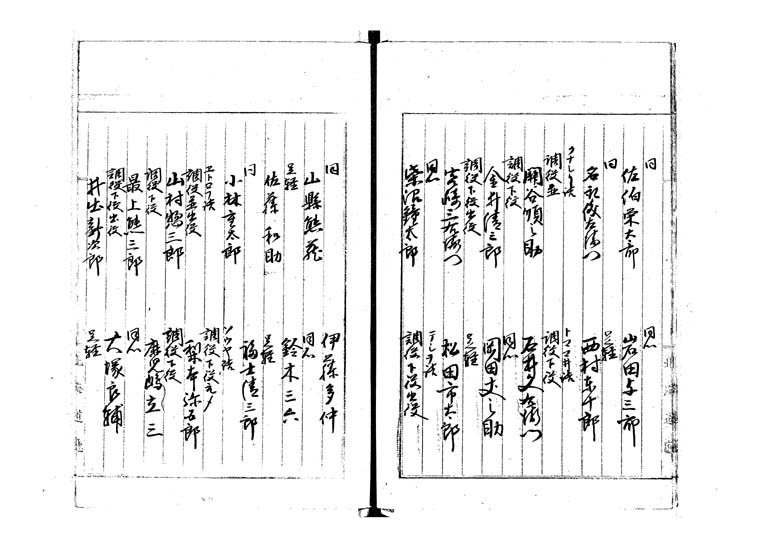 同
佐伯栄太郎
同心
岩田与三郎
同
足軽
西村
クナシリ詰
トママイ詰
調役並
調役下役
関谷順之助
石井
調役下役
同心
金井清三郎
岡田丈之助
調役下役出役
足軽
松田市太郎
同心
テシホ詰
柴沼鐘太郎
調役下役出役
同
山縣熊蔵
伊藤多仲
足軽
同心
佐藤和助
鈴木三六
同
足軽
小林重太郎
福士清三郎
エトロフ詰
ソウヤ詰
調役並出役
調役下役元〆
山村惣三郎
梨本弥五郎
調役下役
調役下役
最上熊三郎
調役下役出役
同心
井出新次郎
大塚良輔
足軽